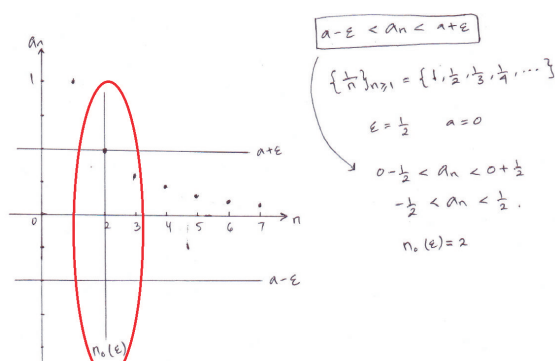 aₙ
1
a+ε
0
2 3 4 5 6 7 n
a-ε
n₀(ε)
a-ε < aₙ < a+ε
{1/n}ₙ≥₁ = {1, 1/2, 1/3, 1/4, ...}
ε = 1/2 a = 0
0 - 1/2 < aₙ < 0 + 1/2
-1/2 < aₙ < 1/2.
n₀(ε) = 2